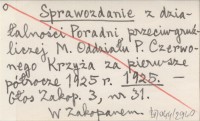 Sprawozdanie z dzia-
łalności Poradni przeciwgruź-
liczej M. Oddziału P. Czerwo-
nego Krzyża za pierwsze
półrocze 1925 r. 1925. —
Głos Zakop. 3, nr 31.
W Zakopanem.